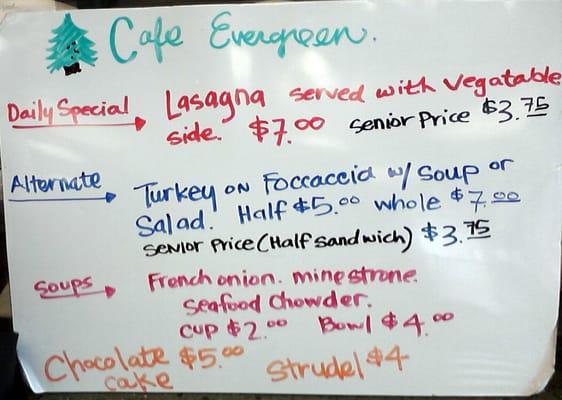 Cafe Evergreen.
Daily Special Lasagna served with Vegatable
side. $7.00 senior Price $3.75
Alternate Turkey on Foccaccia w/ Soup or
Salad. Half $5.00 whole $7.00
senior Price (Half sandwich) $3.75
Soups French onion. minestrone.
Seafood Chowder.
Cup $2.00 Bowl $4.00
Chocolate $5.00 Strudel $4
cake